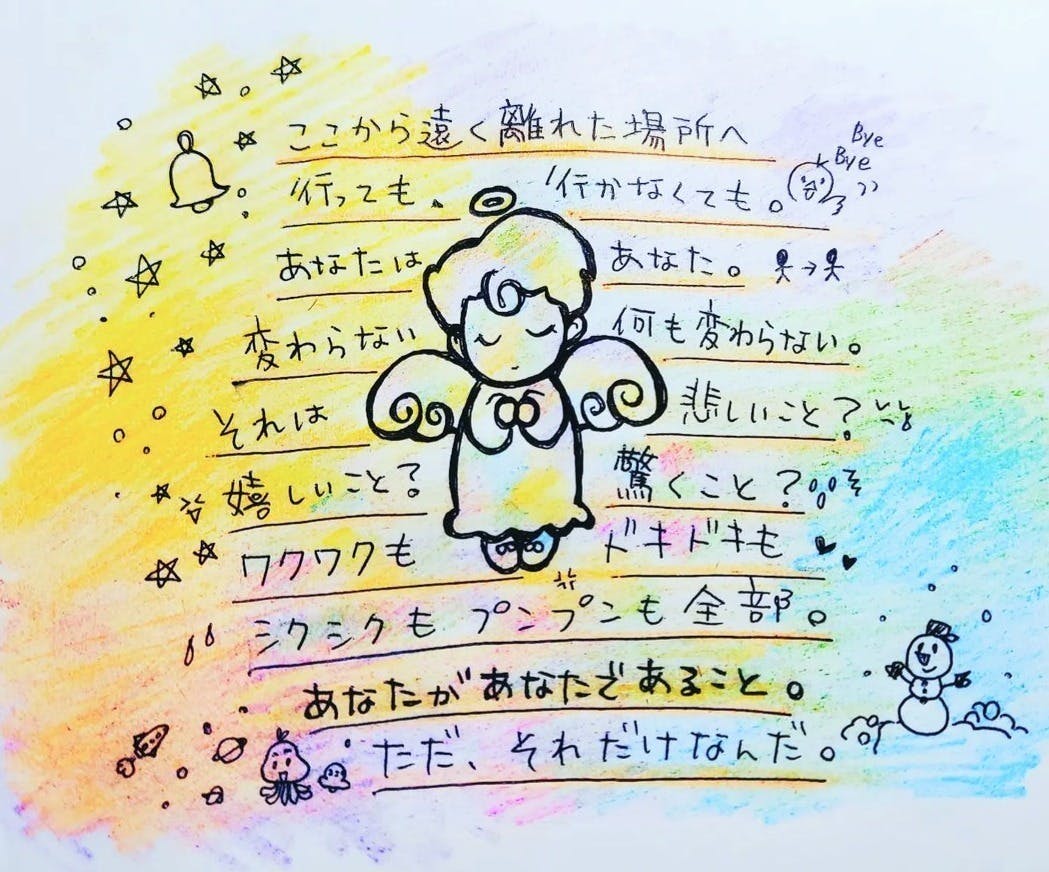 ここから遠く離れた場所へ
Bye
Bye
行っても、 行かなくても。
あなたは あなた。
変わらない 何も変わらない。
それは 悲しいこと?
嬉しいこと? 驚くこと?
ワクワクも ドキドキも
シクシクも プンプンも 全部。
あなたがあなたであること。
ただ、それだけなんだ。